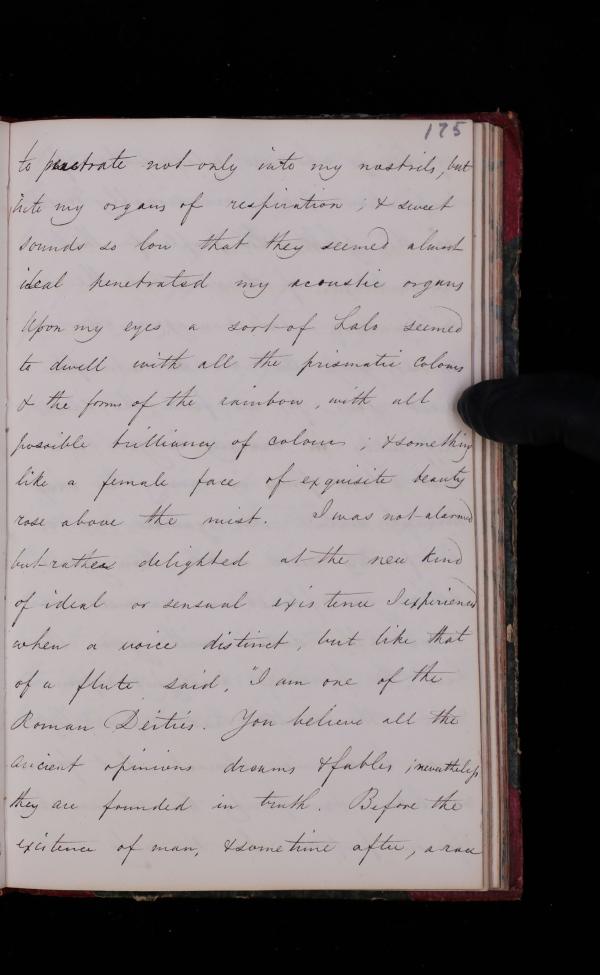 175
to penetrate not only into my nostrils, but
into my organs of respiration ; & sweet
sounds so low that they seemed almost
ideal penetrated my acoustic organs
Upon my eyes a sort of halo seemed
to dwell with all the prismatic colours
& the forms of the rainbow, with all
possible brilliancy of colours ; & something
like a female face of exquisite beauty
rose above the mist. I was not alarmed
but rather delighted at the new kind
of ideal or sensual existence I experienced
when a voice distinct, but like that
of a flute said, "I am one of the
Roman Deities. You believe all the
ancient opinions dreams & fables ; nevertheless
they are founded in truth. Before the
existence of man, & sometime after, a race